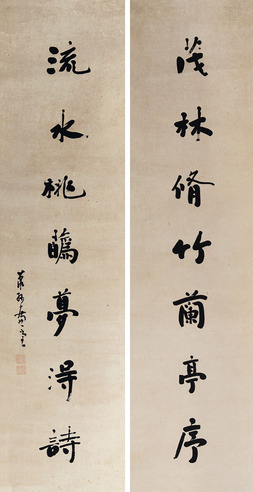 茂林脩竹蘭亭序
流水桃蘤夢得詩